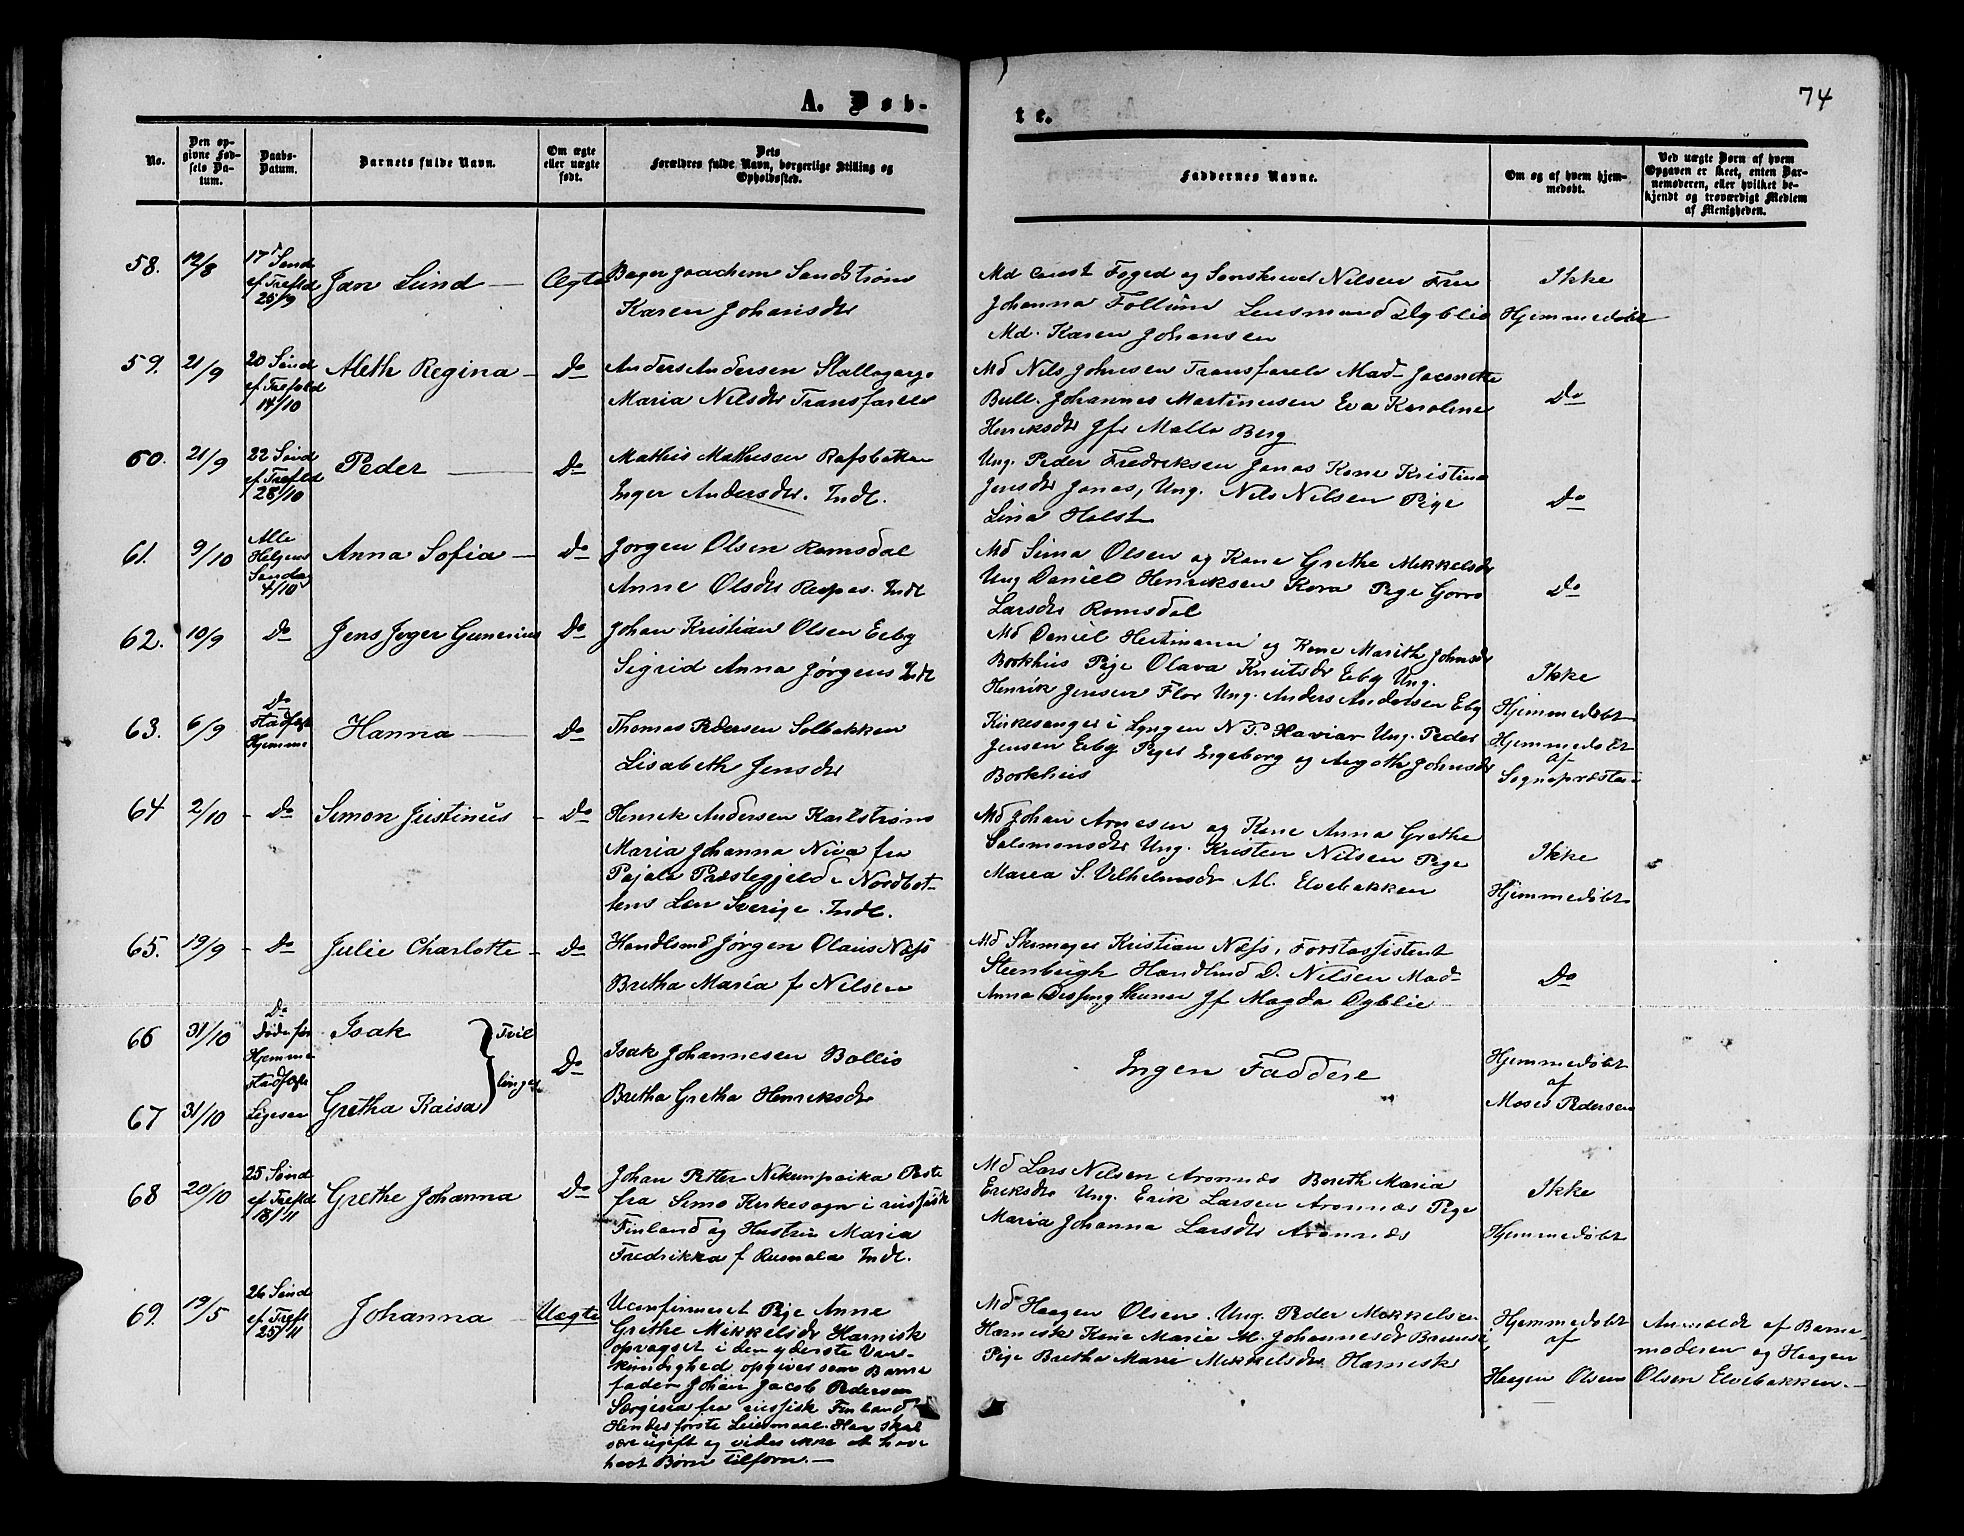 74
A. Døb-
te.
No.
Den op-
givne Fød-
sels Da-
tum.
Daabs-
Datum.
Barnets fulde Navn.
Om ægte
eller uægte
født.
Dets
Forældres fulde Navn, borgerlige Stilling og
Opholdssted.
Faddernes Navne.
Om og af hvem hjem-
medøbt.
Ved uægte Børn af hvem
Opgaven er skeet, enten Bar-
nemoderen, eller hvilket be-
kjendt og troværdigt Medlem
af Menigheden.
58. 12/8
17 Sønd
ef. Trefld
25/9
Jan Lund
Ægte
Bager Joachim Sandstrøm
Karen Johansdr
Foged og Nilsen Fru
Johanna Follum Lensmand Dyblie
Md. Karen Johansen
Ikke
Hjemmedøbt
59. 21/9
20 Sønd
ef. Trefold
14/10
Aleth Regina
Do
Anders Andersen
Maria Nilsdr Transfarelv
Md Nils Johnsen Transfarelv Mad.
Bull. Johannes Martinusen Eva Karoline
Henriksdr Jfr Malla Berg
Do
60. 21/9
22 Sønd
ef. Trefold
28/10
Peder
Do
Mathis Mathisen Rafsbotten
Inger Andersdr. Indl.
Ung. Peder Fredriksen Jonas Kone Kristina
Jensdr Jonas, Ung. Nils Nilsen Pige
Lina Holst
Do
61. 9/10
Alle
Helgens
Søndag
4/10
Anna Sofia
Do
Jørgen Olsen Romsdal
Anne Olsdr Indl
Md Sima Olsen og Kone Grethe Mikkelsdr
Ung Daniel Henriksen Kora Pige
Larsdr Romsdal
Do
62. 10/9
Do
Jens Jøger Gunerius
Do
Johan Kristian Olsen Elby
Sigrid Anna Jørgens Indl
Md Daniel og Kone Marith Johnsdr
Borkhus Pige Olava Knutsdr Elby Ung.
Henrik Jensen Flor Ung. Anders Andersen Elby
Ikke
Hjemmedøbt
63. 6/9
Do
Stadfæst
Hjemme
Hanna
Do
Thomas Pedersen Solbakken
Lisabeth Jensdr
Kirkesanger i Lyngen N. P. Haviar Ung. Peder
Jensen Elby Piger Ingeborg og Johnsdr
Borkhus
Hjemmedøbt
af
Sognepræsten
64 2/10
Do
Simon Justinus
Do
Henrik Andersen Karlstrøm
Maria Johanna Niva fra
Pajala Præstegjeld Nordbot-
tens Len Sverige. Indl.
Md Johan Arnesen og Kone Anna Grethe
Salomonsdr Ung. Kristen Nilsen Pige
Maria S. Vilhelmsdr Elvebakken
Ikke
Hjemmedøbt
65. 19/9
Do
Julie Charlotte
Do
Handlsmd Jørgen Olaus Næss
Bretha Maria f Nilsen
Md Skomager Kristian Næss, Forstassistent
Handlsmd D. Nilsen Mad.
Anna Jf Magda Dyblie
Do
66 31/10
Do
Døde før
Hjemme
stadfæst
Isak
Tvil
linger
Do
Isak Johannesen Bollis
Bretha Gretha Henriksdr
Ingen Faddere
Hjemmedøbt
af
Moses Pedersen
67 31/10
Ligesaa
Gretha Kaisa
68 20/10
25 Sønd
ef. Trefld
18/11
Grethe Johanna
Do
Johan Petter
fra Simo Kirkesogn i russisk
Finland og Hustru Maria
Fredrikka f Indl.
Md Lars Nilsen Aronnæs Bereth Maria
Eriksdr Ung. Erik Larsen Aronnæs Pige
Maria Johanna Larsdr Aronnæs
Ikke
Hjemmedøbt
69. 19/5
26 Sønd
ef. Trefl
25/11
Johanna
Uægte
Uconfirmeret Pige Anne
Grethe Mikkelsdr Harnisk
opvoxet i den yderste Van-
kundighed opgiver som Barne
fader Johan Jacob Pedersen
fra russisk Finland
Hendes første Leiermaal. Han skal
være ugift og vides ikke at have
havt Børn tilforn.
Md Haagen Olsen. Ung. Peder Mikkelsen
Harnisk Kone Marie M. Johannesdr
Pige Bretha Marie Mikkelsdr Harnisk
Hjemmedøbt
af
Haagen Olsen
Anmeldt af Barne-
moderen og Haagen
Olsen Elvebakken.